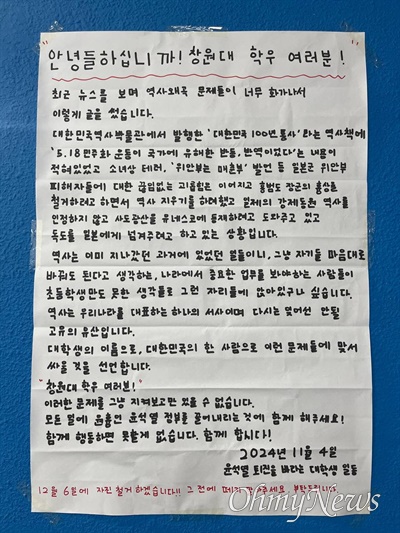 안녕들하십니까! 창원대 학우 여러분!
최근 뉴스를 보며 역사왜곡 문제들이 너무 화가나서
이렇게 글을 썼습니다.
대한민국역사박물관에서 발행한 '대한민국 100년 통사'라는 역사책에
'5.18민주화 운동이 국가에 유해한 반동, 반역이었다'는 내용이
적혀있었고 소녀상 테러, '위안부는 매춘부' 발언 등 일본군 위안부
피해자들에 대한 끊임없는 괴롭힘은 이어지고 홍범도 장군의 흉상을
철거하려고 하면서 역사 지우기를 하려했고 일제의 강제동원 역사를
인정하지 않고 사도광산을 유네스코에 등재하려고 도와주고 있고
독도를 일본에게 넘겨주려고 하고 있는 상황입니다.
역사는 이미 지나갔던 과거에 있었던 일들이니, 그냥 자기들 마음대로
바꿔도 된다고 생각하는, 나라에서 중요한 업무를 보아야하는 사람들이
초등학생만도 못한 생각들로 그런 자리들에 앉아있구나 싶습니다.
역사는 우리나라를 대표하는 하나의 서사이며 다시는 없어선 안될
고유의 유산입니다.
대학생의 이름으로, 대한민국의 한 사람으로 이런 문제들에 맞서
싸울 것을 선언합니다.
"창원대 학우 여러분!"
이러한 문제를 그냥 지켜보고만 있을 수 없습니다.
모든 일에 원흉인 윤석열 정부를 끌어내리는 것에 함께 해주세요!
함께 행동하면 못할게 없습니다. 함께 합시다!
2024년 11월 4일
윤석열 퇴진을 바라는 대학생 일동
12월 6일에 자진 철거 하겠습니다!! 그 전에 떼지 말아주세요 부탁드립니다
OhmyNews